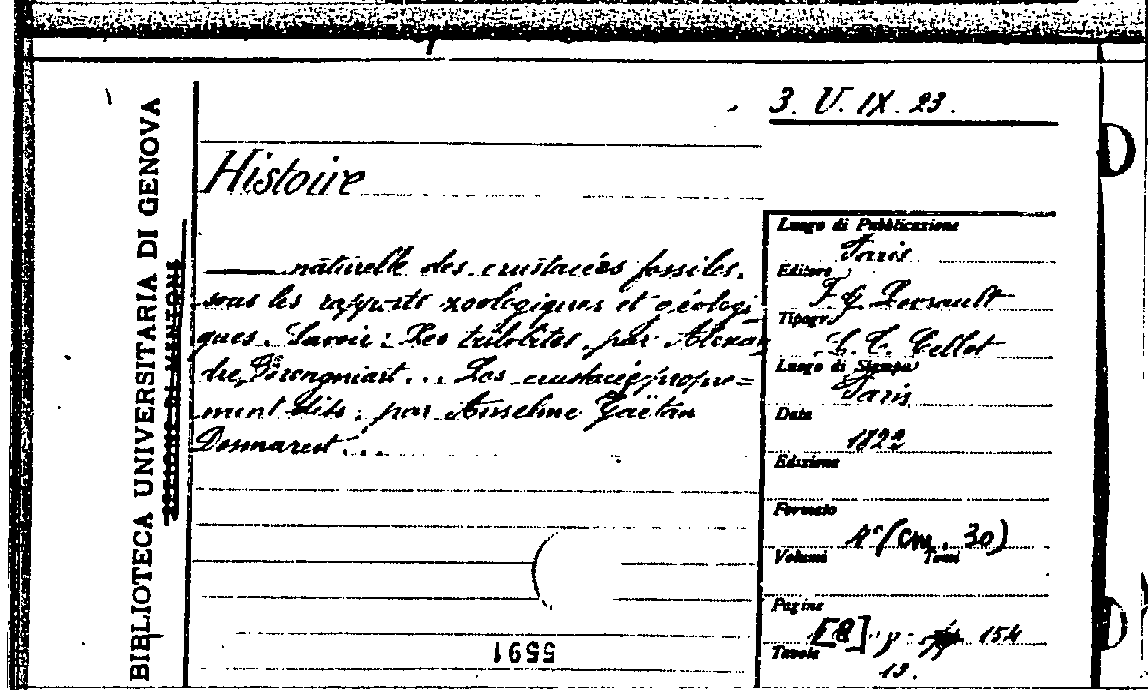 BIBLIOTECA UNIVERSITARIA DI GENOVA
3. V. IX. 23.
Histoire
naturelle des crustacés fossiles,
sous les rapports zoologiques et géologi
ques. Savoir: Les trilobites, par Alexan
dre Brongniart... Les crustacés propre=
ment dits, par Anselme Gaëtan
Desmarest...
Luogo di Pubblicazione
Paris
Editore
F. G. Levrault
Tipogr.
Luogo di Stampa
Paris
Data
1822
Edizione
Formato
4° (cm. 30)
Volumi Tomi
Pagine
[8] p. 154
Tavole
5591